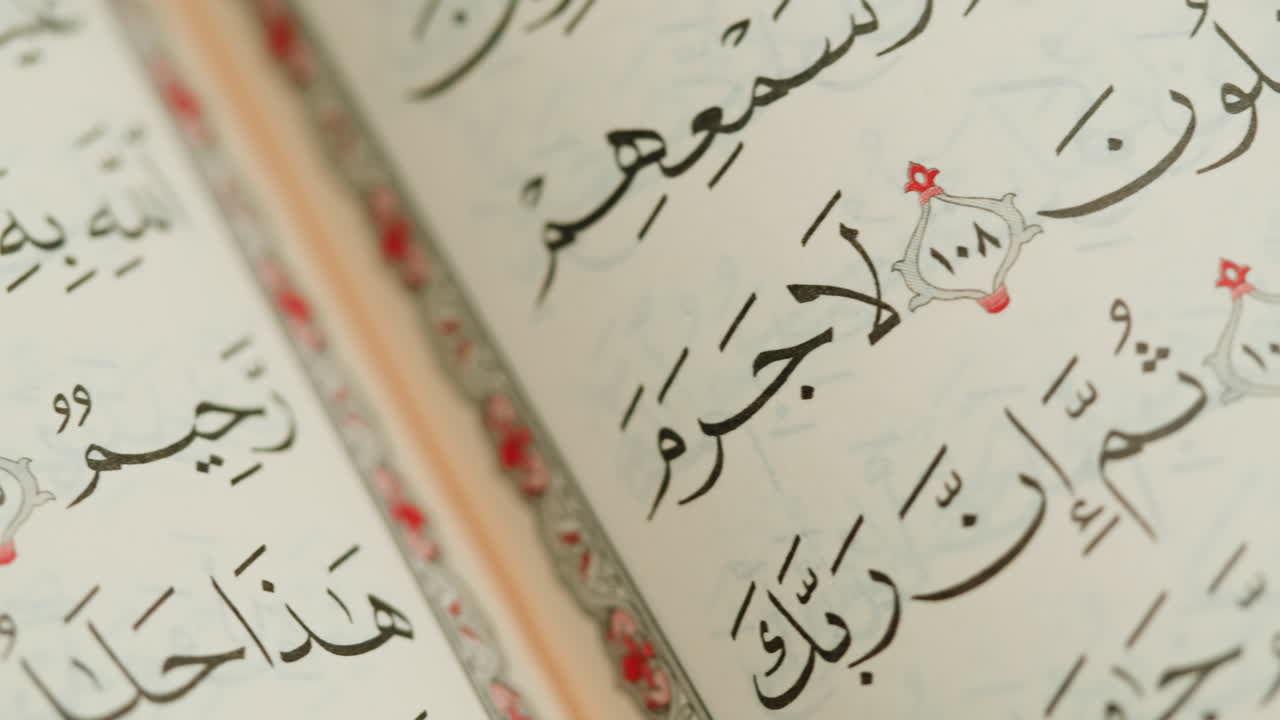 وَسَمْعِهِمْ
لُونَ ١٠٨ لَا جَرَمَ
ثُمَّ إِنَّ رَبَّكَ
ٱللَّهِ بِهِ
رَّحِيمٌ
هَٰذَا حَلَٰلٌ